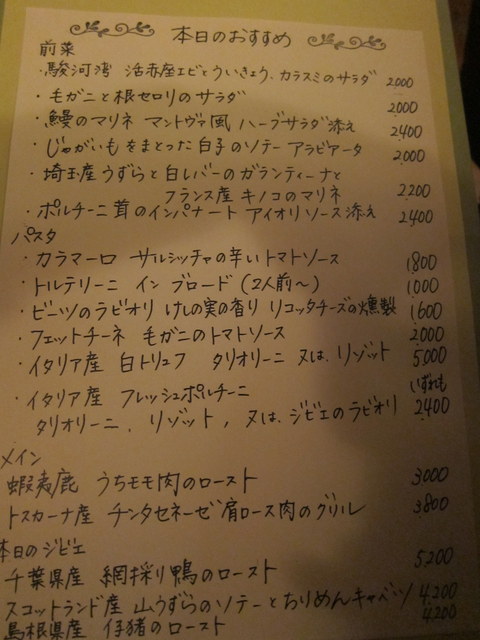 本日のおすすめ
前菜
・駿河湾 活赤座エビとういきょう、カラスミのサラダ 2,000
・毛ガニと根セロリのサラダ 2,000
・鰻のマリネ マントヴァ風 ハーブサラダ添え 2,400
・じゃがいもをまとった白子のソテー アラビアータ 2,000
・埼玉産うずらと白レバーのガランティーナと
フランス産 キノコのマリネ 2,200
・ポルチーニ茸のインパナート アイオリソース添え 2,400
パスタ
・カラマーロ サルシッチャの辛いトマトソース 1,800
・トルテリーニ イン ブロード (2人前〜) 1,000
・ビーツのラビオリ けしの実の香り リコッタチーズの燻製 1,600
・フェットチーネ 毛ガニのトマトソース 2,000
・イタリア産 白トリュフ タリオリーニ 又は、リゾット 5,000
・イタリア産 フレッシュポルチーニ いずれも
タリオリーニ、リゾット、又は、ジビエのラビオリ 2,400
メイン
蝦夷鹿 うちモモ肉のロースト 3,000
トスカーナ産 チンタセネーゼ肩ロース肉のグリル 3,800
本日のジビエ
千葉県産 網採り鴨のロースト 5,200
スコットランド産 山うずらのソテーとちりめんキャベツ 4,200
島根県産 仔猪のロースト 4,200